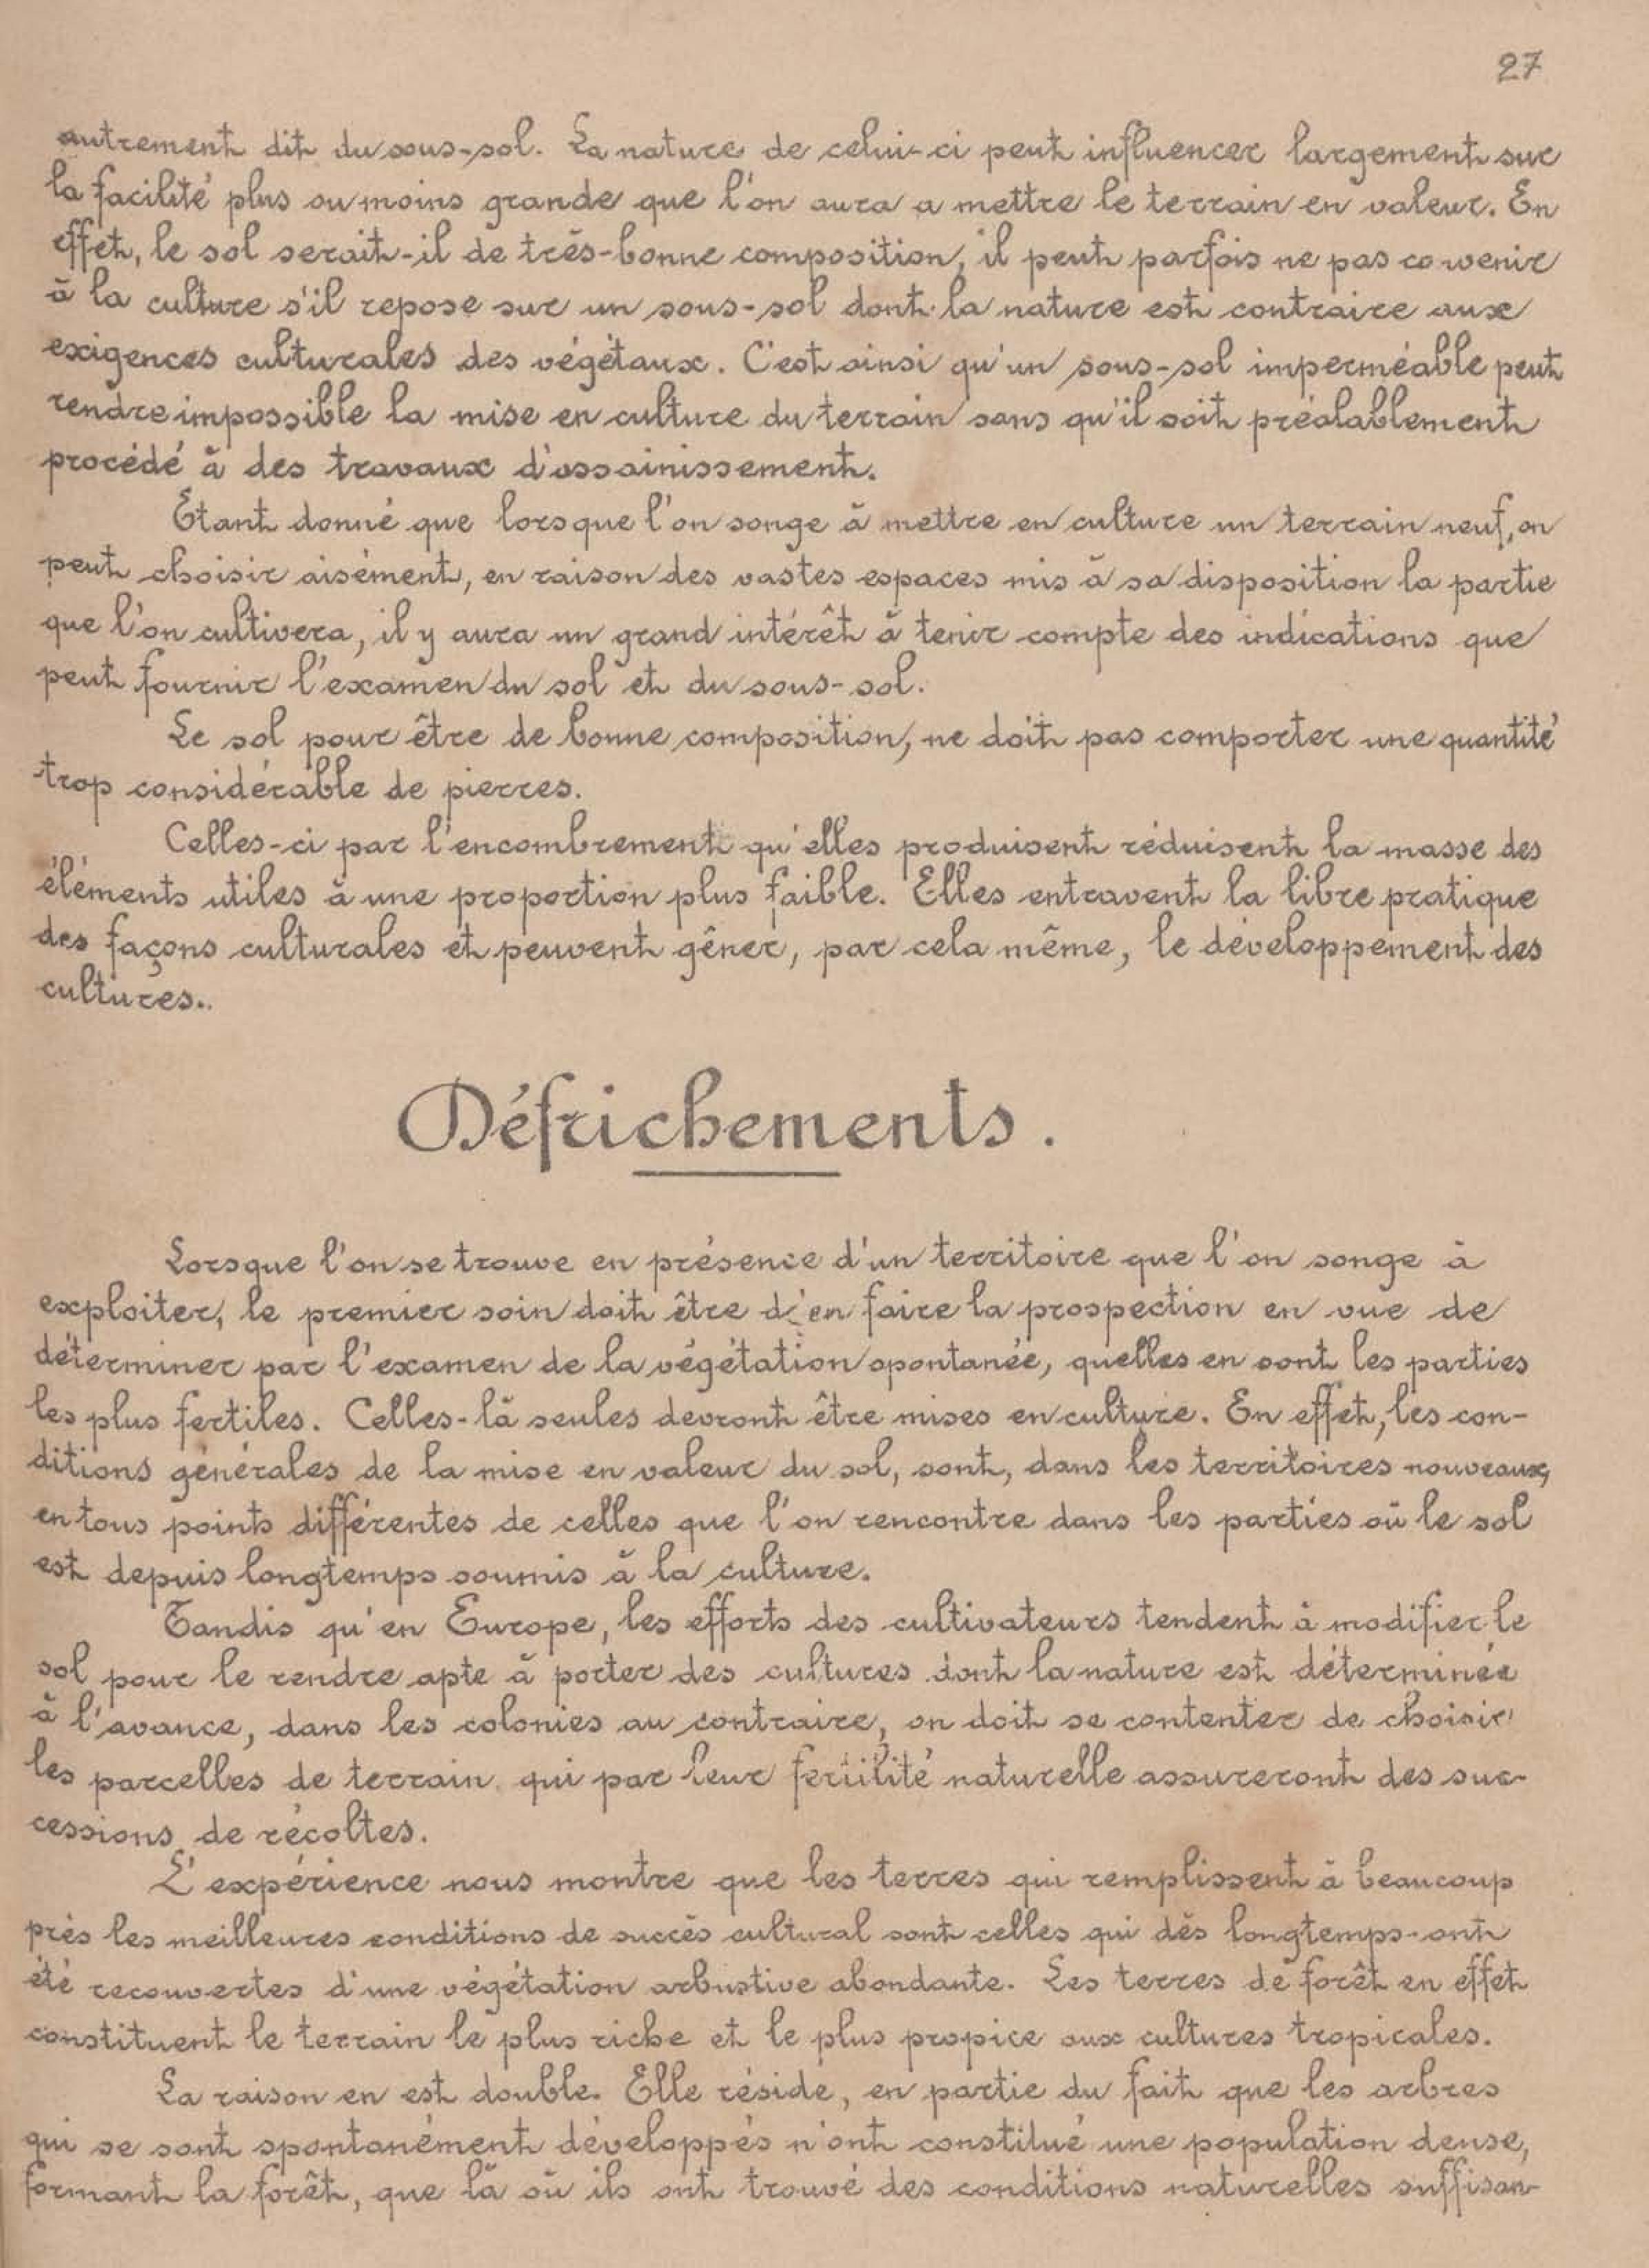 27
autrement dit du sous-sol. La nature de celui-ci peut influencer largement sur
la facilité plus ou moins grande que l'on aura a mettre le terrain en valeur. En
effet, le sol serait-il de très-bonne composition, il peut parfois ne pas convenir
à la culture s'il repose sur un sous-sol dont la nature est contraire aux
exigences culturales des végétaux. C'est ainsi qu'un sous-sol imperméable peut
rendre impossible la mise en culture du terrain sans qu'il soit préalablement
procédé à des travaux d'assainissement.
Etant donné que lorsque l'on songe à mettre en culture un terrain neuf, on
peut choisir aisément, en raison des vastes espaces mis à sa disposition la partie
que l'on cultivera, il y aura un grand intérêt à tenir compte des indications que
peut fournir l'examen du sol et du sous-sol.
Le sol pour être de bonne composition, ne doit pas comporter une quantité
trop considérable de pierres.
Celles-ci par l'encombrement qu'elles produisent réduisent la masse des
éléments utiles à une proportion plus faible. Elles entravent la libre pratique
des façons culturales et peuvent gêner, par cela même, le développement des
cultures..
Défrichements.
Lorsque l'on se trouve en présence d'un territoire que l'on songe à
exploiter, le premier soin doit être d'en faire la prospection en vue de
déterminer par l'examen de la végétation spontanée, quelles en sont les parties
les plus fertiles. Celles-là seules devront être mises en culture. En effet, les con-
ditions générales de la mise en valeur du sol, sont, dans les territoires nouveaux,
en tous points différentes de celles que l'on rencontre dans les parties où le sol
est depuis longtemps soumis à la culture.
Tandis qu'en Europe, les efforts des cultivateurs tendent à modifier le
sol pour le rendre apte à porter des cultures dont la nature est déterminée
à l'avance, dans les colonies au contraire, on doit se contenter de choisir
les parcelles de terrain qui par leur fertilité naturelle assureront des suc-
cessions de récoltes.
L'expérience nous montre que les terres qui remplissent à beaucoup
près les meilleures conditions de succès cultural sont celles qui dès longtemps ont
été recouvertes d'une végétation arbustive abondante. Les terres de forêt en effet
constituent le terrain le plus riche et le plus propice aux cultures tropicales.
La raison en est double. Elle réside, en partie du fait que les arbres
qui se sont spontanément développés n'ont constitué une population dense,
formant la forêt, que là où ils ont trouvé des conditions naturelles suffisan-